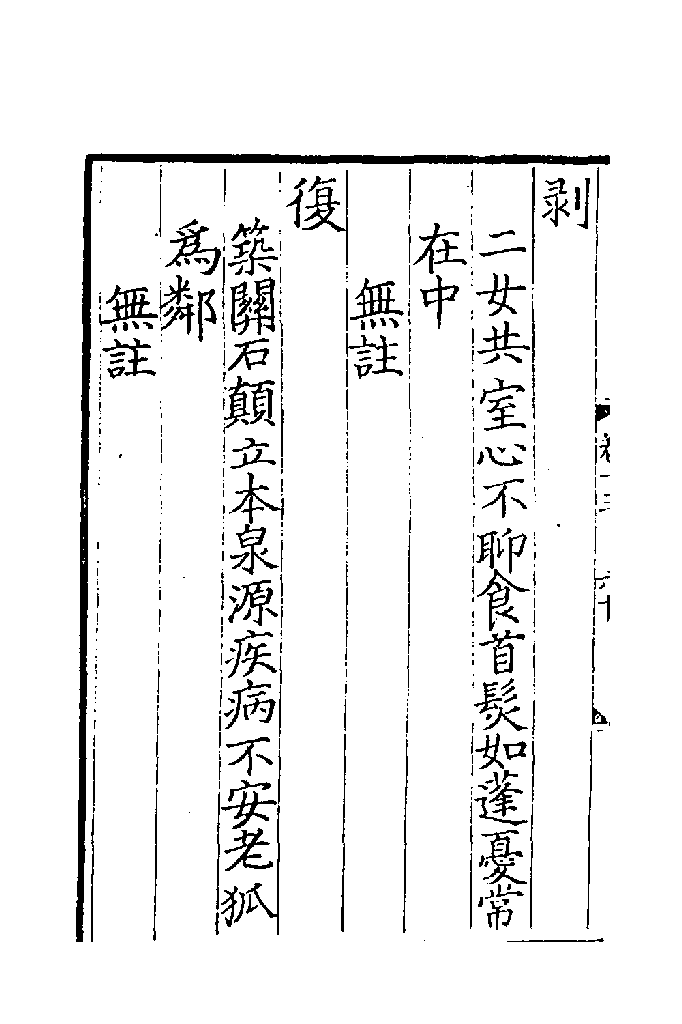 剥
二女共室心不聊食首髮如蓬憂常
在中
無註
復
築闗石顛立本泉源疾病不安老狐
爲鄰
無註